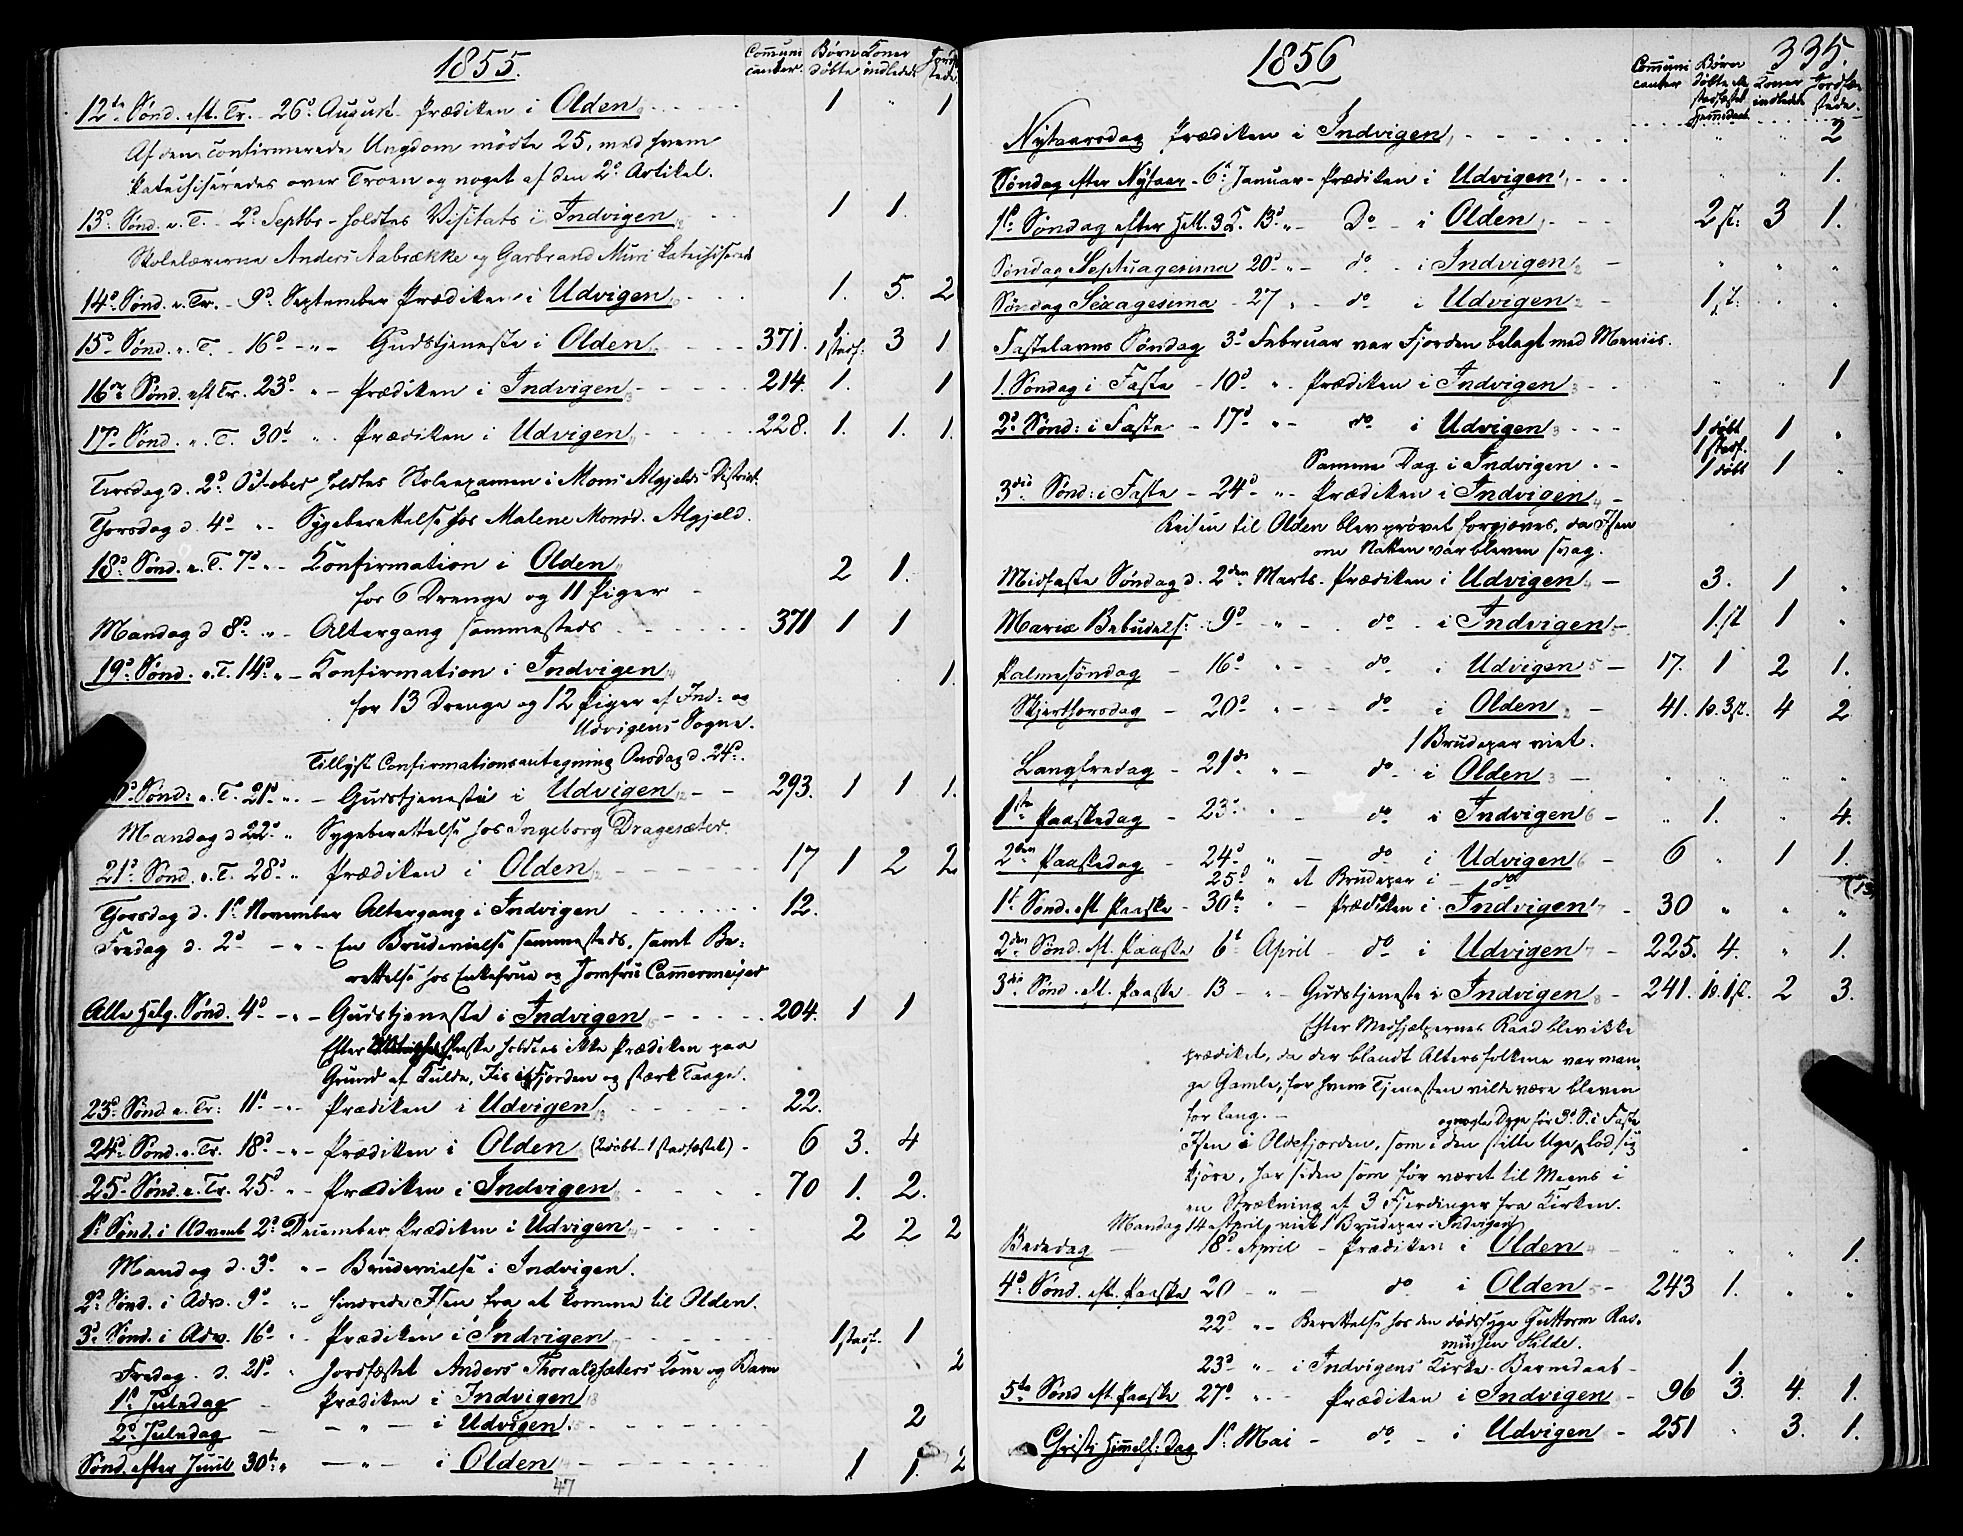 1855.
Communicanter. Børn døbte Koner indledede Jordfæstede
12te Sønd. eft. Tr. 26d August Prædiken i Olden 1 " 1
Af den confirmerede Ungdom mødte 25, med hvem
Katechiseredes over Troen og noget af den 2d Artikel.
13d Sønd. e. T. - 2d Septbr holdtes Visitats i Indvigen 1 1.
Skolelærerne Anders Aabrække og Garbrand Muri Katechiserede
14d Sønd. e. Tr. - 9d September Prædiken i Udvigen 1. 5. 2
15d Sønd. e. T. - 16d " Gudstjeneste i Olden 371. 1 1 stadf. 3 1
16de Sønd. eft Tr. 23d " Prædiken i Indvigen 214. 1. 1
17d Sønd. e. T. 30t " Prædiken i Udvigen 228. 1. 1. 1.
Tirsdag d. 2d October holdtes Skoleexamen i Mons Algjelds District.
Torsdag d. 4d " Sygeberettelse hos Malene Monsd. Algjeld.
18d Sønd. e. T. 7d " Confirmation i Olden 2 1.
for 6 Drenge og 11 Piger
Mandag d 8d " Altergang sammesteds 371 1 1
19d Sønd. e. T. 14d " Confirmation i Indvigen 1.
for 13 Drenge og 12 Piger af Ind- og
Udvigens Sogne.
Tillyst Confirmationsantegning Onsdag d. 24d.
Sønd: e. T. 21d " Gudstjeneste i Udvigen 293. 1 1 1.
Mandag d 22d " Sygeberettelse hos Ingeborg Dragesæter.
21d Sønd. e. T. 28d " Prædiken i Olden 17 1 2 2
Torsdag d. 1d November Altergang i Indvigen 12.
Fredag d. 2d " En Brudevielse sammesteds, samt Be-
rettelse hos Enkefrue og Jomfru Cammermeijer
Alle Helg. Sønd. 4d " Gudstjeneste i Indvigen 204. 1 1
Efter holdtes ikke Prædiken paa
Grund af Kulde, Iis i Fjorden og stærk Taage.
23d Sønd e. Tr: 11d " Prædiken i Udvigen 22.
24d Sønd. e. Tr. 18d " Prædiken i Olden (2 døbt - 1 stadfæstet) 6 3. 4
25d Sønd. e. Tr. 25d " Prædiken i Indvigen 70 1. 2.
1d Sønd. i Advent 2d December Prædiken i Udvigen 2 2 2
Mandag d. 3d " Brudevielse i Indvigen.
2d Sønd. i Adv. 9d " hindrede Isen fra at komme til Olden.
3d Sønd. i Adv. 16d " Prædiken i Indvigen 1 stadf. 1
Fredag d. 21d " Jordfæstet Anders Thoraldsæters Kone og Barn 2
1d Juledag - Prædiken i Indvigen
2d Juledag - " - i Udvigen 2
Sønd. efter Juul 30te " - " - i Olden 1 1. 2
47
1856
335.
Communicanter Børn døbte ell. stadfæstet hjemmedøbt Koner indledede Jordfæstede.
Nytaarsdag Prædiken i Indvigen " " 2
Søndag efter Nytaar - 6t Januar - Prædiken i Udvigen " " 1.
1d Søndag efter Hell. 3 K. 13d " Do i Olden 2 st: 3 1.
Søndag Septuagesima 20d " do i Indvigen " " "
Søndag Sexagesima - 27 " do i Udvigen 1 st. " "
Fastelavns Søndag 3d Februar var Fjorden belagt med Meniis.
1. Søndag i Faste - 10d " Prædiken i Indvigen " " 1
2d Sønd: i Faste - 17d " do i Udvigen 1 døbt 1 stadf. 1 "
Samme Dag i Indvigen 1 døbt 1 "
3die Sønd: i Faste - 24d " Prædiken i Indvigen
Reisen til Olden blev prøvet forgjæves, da Isen
om Natten var bleven svag.
Midfaste Søndag d. 2den Marts. Prædiken i Udvigen 3. 1 "
Mariæ Bebudelse: 9d " do i Indvigen 1. st 1 "
Palmesøndag - 16d " do i Udvigen 17. 1 2 1.
Skjærthorsdag - 20d " do i Olden 41. 10. 3 st. 4 2
1 Brudepar viet.
Langfredag - 21de " do i Olden " " " "
1ste Paaskedag - 23d " do i Indvigen " 1. " 4.
2den Paaskedag - 24d " do i Udvigen 6 " 1 1.
25d " et Brudepar i do (13
1t Sønd. eft Paaske - 30te " Prædiken i Indvigen 30 " " "
2den Sønd. eft. Paaske 6t April do i Udvigen 225. 4. " 1.
3die Sønd. eft. Paaske 13 " Gudstjeneste i Indvigen 241. 10. 1 st. 2 3.
Efter Medhjælpernes Raad blev ikke
prædiket, da der blandt Altersfolkene var man-
ge Gamle, for hvem Tjenesten vilde være bleven
for lang. -
og nogle Dage før 3d S. i Faste
Isen i Oldefjorden, som i den stille Uge lod sig
kjøre, har siden som før været til Meens i
en Strækning af 3 Fjerdinger fra Kirken.
Mandag 14 April viet 1 Brudepar i Indvigen
Bededag - 18d April - Prædiken i Olden " " " 1.
4d Sønd. eft. Paaske 20 " do i Olden 243 1. " "
22d " Berettelse hos den dødssyge Guttorm Ras-
mussen Hilde.
23d " i Indvigens Kirke Barnedaab 1.
5te Sønd eft Paaske 27d " Prædiken i Indvigen 96 3. 4. 1.
Christi Himmelf: Dag 1d Mai - do - i Udvigen 251 " 3. 1.